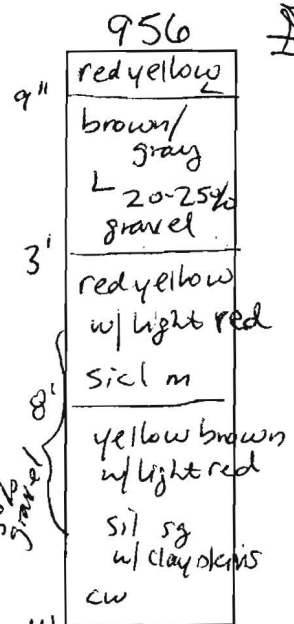 956
red yellow
L
9"
brown/
gray
L 20-25%
gravel
3'
red yellow
w/ light red
sicl m
8'
yellow brown
w/ light red
gravel
sil sg
w/ clay skins
cw